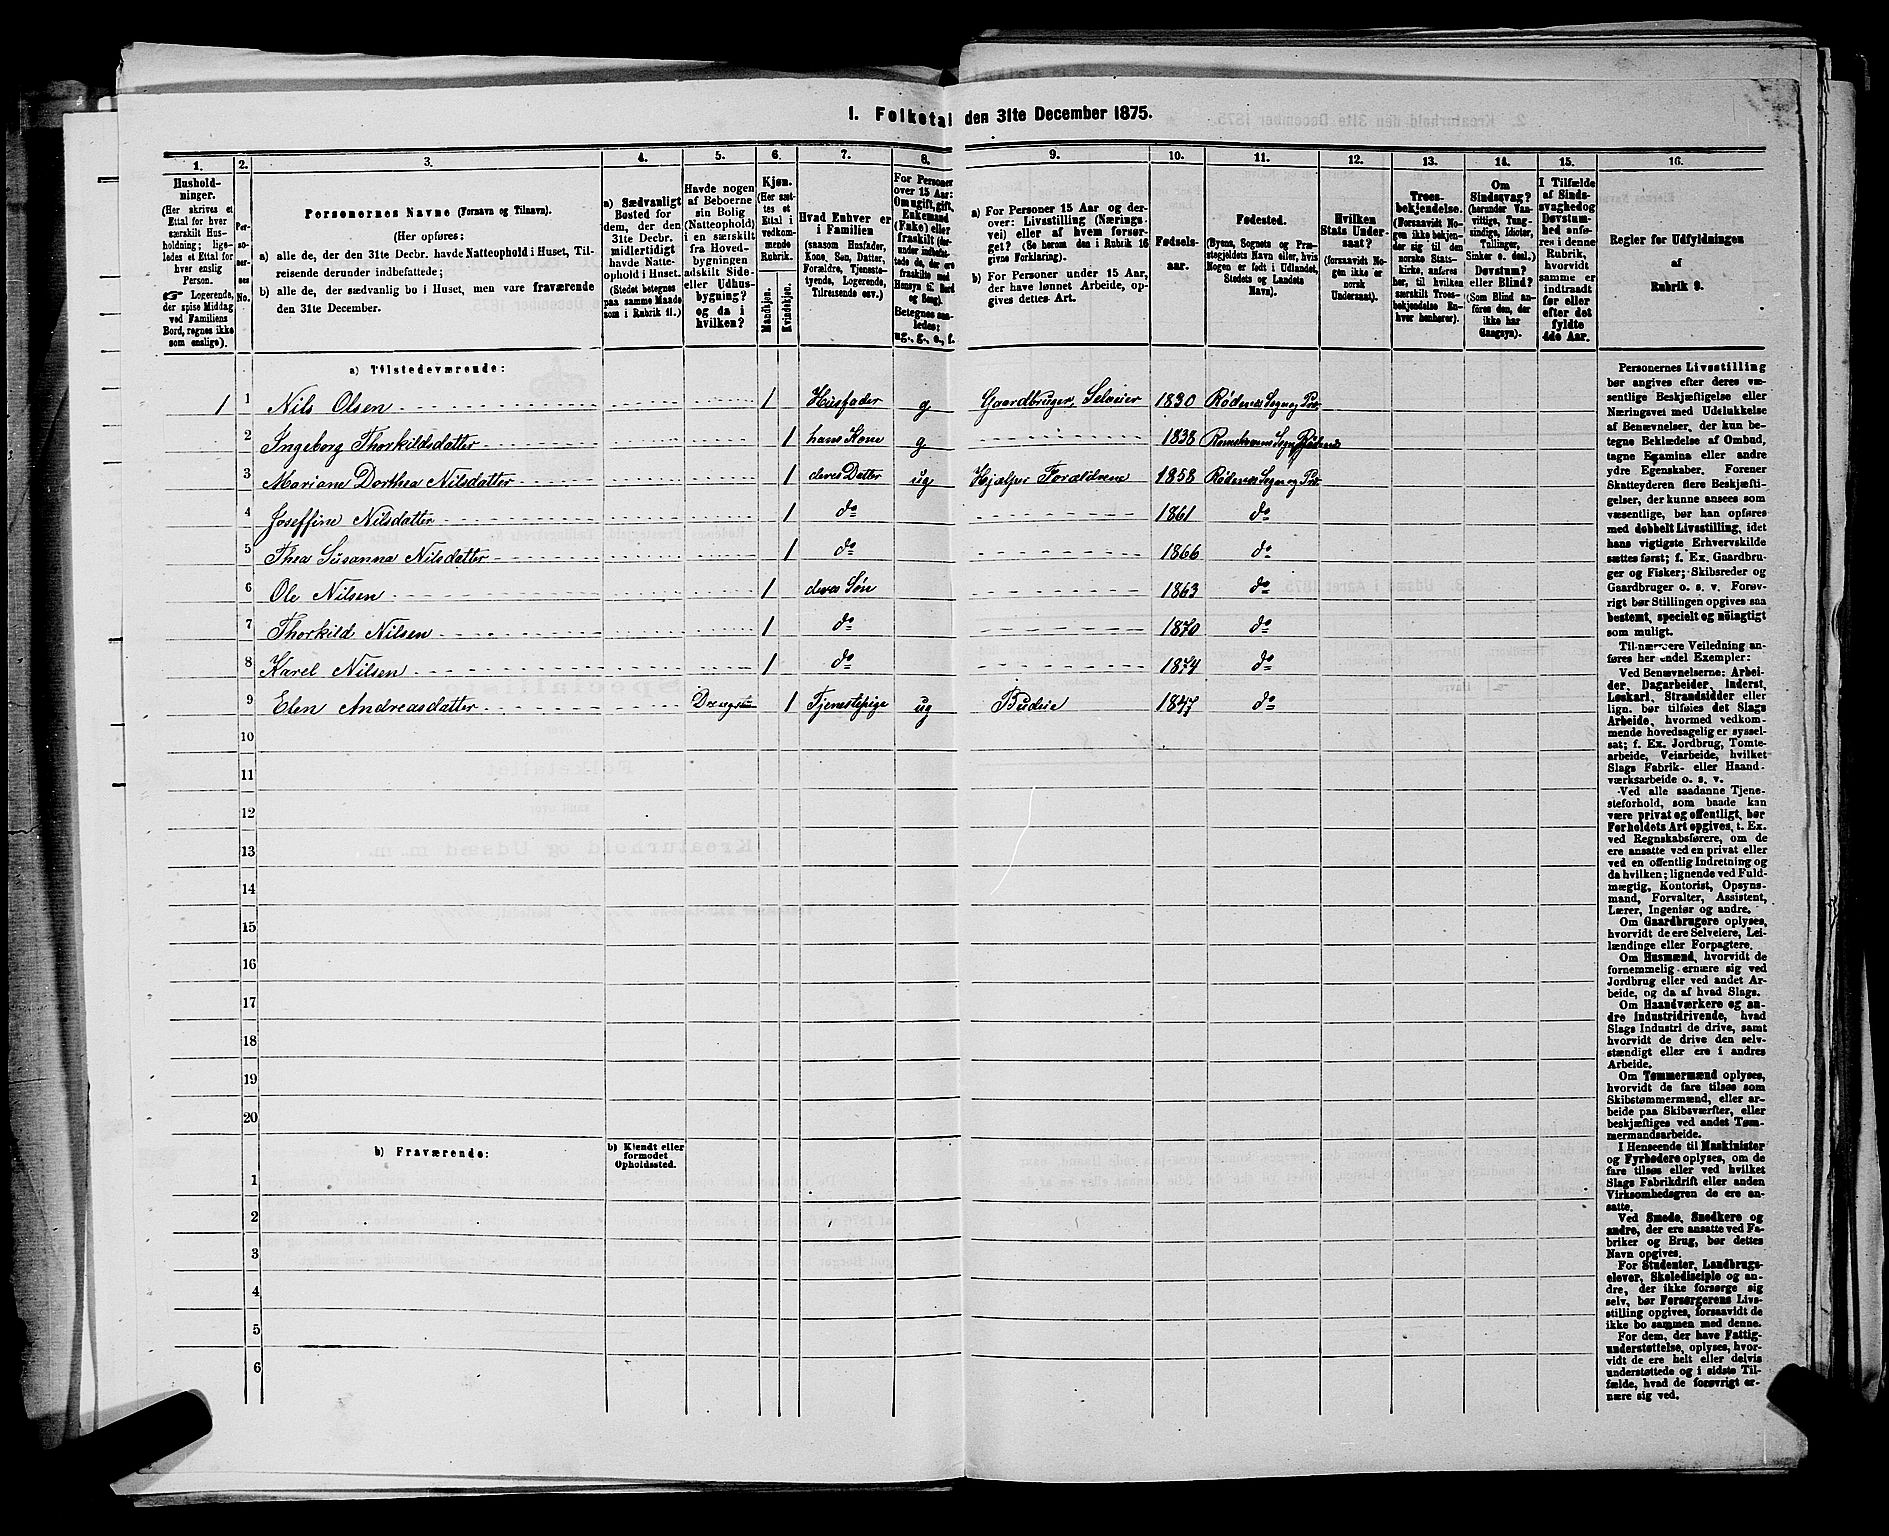 1. Folketal den 31te December 1875.
1. 2. 3. 4. 5. 6. 7. 8. 9. 10. 11. 12. 13. 14. 15. 16.
Hushold-
ninger.
(Her skrives et
Ettal for hver
særskilt Hus-
holdning; lige-
ledes et Ettal for
hver enslig
Person.
☞ Logerende,
der spise Middag
ved Familiens
Bord, regnes ikke
som enslige).
Per-
so-
ner-
nes
No.
Personernes Navne (Fornavn og Tilnavn).
(Her opføres:
a) alle de, der den 31te Decbr. havde Natteophold i Huset, Til-
reisende derunder indbefattede;
b) alle de, der sædvanlig bo i Huset, men vare fraværende
den 31te December.
a) Sædvanligt
Bosted for
dem, der den
31te Decbr.
midlertidigt
havde Natte-
ophold i Huset.
(Stedet betegnes
paa samme Maade
som i Rubrik 11.)
Havde nogen
af Beboerne
sin Bolig
(Natteophold)
i en særskilt
fra Hoved-
bygningen
adskilt Side-
eller Udhus-
bygning?
og da i
hvilken?
Kjøn.
(Her sæt-
tes et
Ettal i
vedkom-
mende
Rubrik.
Mandkjøn.
Kvindekjøn.
Hvad Enhver er
i Familien
(saasom Husfader,
Kone, Søn, Datter,
Forældre, Tjeneste-
tyende, Logerende,
Tilreisende osv.)
For Personer
over 15 Aar:
Om ugift, gift,
Enkemand
(Enke) eller
fraskilt (der-
under indbefat-
tede de, der ere
fraskilte med
Hensyn til Bord
og Seng).
Betegnes saa-
ledes:
ug., g., e., f.
a) For Personer 15 Aar og der-
over: Livsstilling (Nærings-
vei) eller af hvem forsør-
get? (Se herom den i Rubrik 16
givne Forklaring).
b) For Personer under 15 Aar,
der have lønnet Arbeide, op-
gives dettes Art.
Fødsels-
aar.
Fødested.
(Byens, Sognets og Præ-
stegjeldets Navn eller, hvis
Nogen er født i Udlandet,
Stedets og Landets
Navn).
Hvilken
Stats Under-
saat?
(forsaavidt No-
gen ikke er
norsk
Undersaat).
Troes-
bekjendelse.
(Forsaavidt No-
gen ikke bekjen-
der sig til den
norske Stats-
kirke, anføres
her, til hvilken
særskilt Troes-
bekjendelse En-
hver henhører).
Om
Sindssvag?
(herunder Van-
vittige, Tung-
sindige, Idioter,
Tullinger,
Sinker o. desl.)
Døvstum?
eller Blind?
(Som Blind an-
føres den, der
ikke har
Gangsyn).
I Tilfælde
af Sinds-
svaghed og
Døvstum-
hed anfø-
res i denne
Rubrik,
hvorvidt
samme er
indtraadt
før eller
efter det
fyldte
4de Aar.
Regler for Udfyldningen
af
Rubrik 9.
a) Tilstedeværende:
1 1 Nils Olsen 1 Husfader g Gaardbruger, Selveier 1830 Rødenes Sogn og Pr.
2 Ingeborg Thorkildsdatter 1 hans Kone g 1838
3 Mariane Dorthea Nilsdatter 1 deres Datter ug Hjælper Forældrene 1858 Rødenes Sogn og Pr.
4 Joseffine Nilsdatter 1 do 1861 do
5 Thea Susanna Nilsdatter 1 do 1866 do
6 Ole Nilsen 1 deres Søn 1863 do
7 Thorkild Nilsen 1 do 1870 do
8 Karel Nilsen 1 do 1874 do
9 Elen Andreasdatter 1 Tjenestepige ug Budeie 1847 do
10
11
12
13
14
15
16
17
18
19
20
b) Fraværende:
b) Kjendt eller
formodet
Opholdssted.
1
2
3
4
5
6
Personernes Livsstilling
bør angives efter deres væ-
sentlige Beskjæftigelse eller
Næringsvei med Udelukkelse
af Benævnelser, der kun be-
tegne Beklædelse af Ombud,
tagne Examina eller andre
ydre Egenskaber. Forener
Skatteyderen flere Beskjæfti-
gelser, der kunne ansees som
væsentlige, bør han opføres
med dobbelt Livsstilling, idet
hans vigtigste Erhvervskilde
sættes først; f. Ex. Gaardbru-
ger og Fisker; Skibsreder og
Gaardbruger o. s. v. Forøv-
rigt bør Stillingen opgives saa
bestemt, specielt og nøiagtigt
som muligt.
Til nærmere Veiledning an-
føres her endel Exempler:
Ved Benævnelserne: Arbei-
der, Dagarbeider, Inderst,
Løskarl, Strandsidder eller
lign. bør tilføies det Slags
Arbeide, hvormed vedkom-
mende hovedsagelig er syssel-
sat; f. Ex. Jordbrug, Tomte-
arbeide, Veiarbeide, hvilket
Slags Fabrik- eller Haand-
værksarbeide o. s. v.
Ved alle saadanne Tjene-
steforhold, som baade kan
være privat og offentligt, bør
Forholdets Art opgives, t. Ex.
ved Regnskabsførere, om de
ere ansatte ved en privat eller
ved en offentlig Indretning og
da hvilken; lignende ved Fuld-
mægtig, Kontorist, Opsyns-
mand, Forvalter, Assistent,
Lærer, Ingeniør og andre.
Om Gaardbrugere oplyses,
hvorvidt de ere Selveiere, Lei-
lændinge eller Forpagtere.
Om Husmænd, hvorvidt de
fornemmelig ernære sig ved
Jordbrug eller ved andet Ar-
beide, og da af hvad Slags.
Om Haandværkere og an-
dre Industridrivende, hvad
Slags Industri de drive, samt
hvorvidt de drive den selv-
stændigt eller ere i andres
Arbeide.
Om Tømmermænd oplyses,
hvorvidt de fare tilsøs som
Skibstømmermænd, eller ar-
beide paa Skibsværfter, eller
beskjæftiges ved andet Tøm-
mermandsarbeide.
I Henseende til Maskinister
og Fyrbødere oplyses, om de
fare tilsøs eller ved hvilket
Slags Fabrikdrift eller anden
Virksomhedsgren de ere an-
satte.
Ved Smede, Snedkere og
andre, der ere ansatte ved Fa-
briker og Brug, bør dettes
Navn opgives.
For Studenter, Landbrugs-
elever, Skoledisciple og an-
dre, der ikke forsørge sig
selv, bør Forsørgerens Livs-
stilling opgives, forsaavidt de
ikke bo sammen med denne.
For dem, der have Fattig-
understøttelse, oplyses, hvor-
vidt de ere helt eller delvis
understøttede og i sidste Til-
fælde, hvad de forøvrigt er-
nære sig ved.